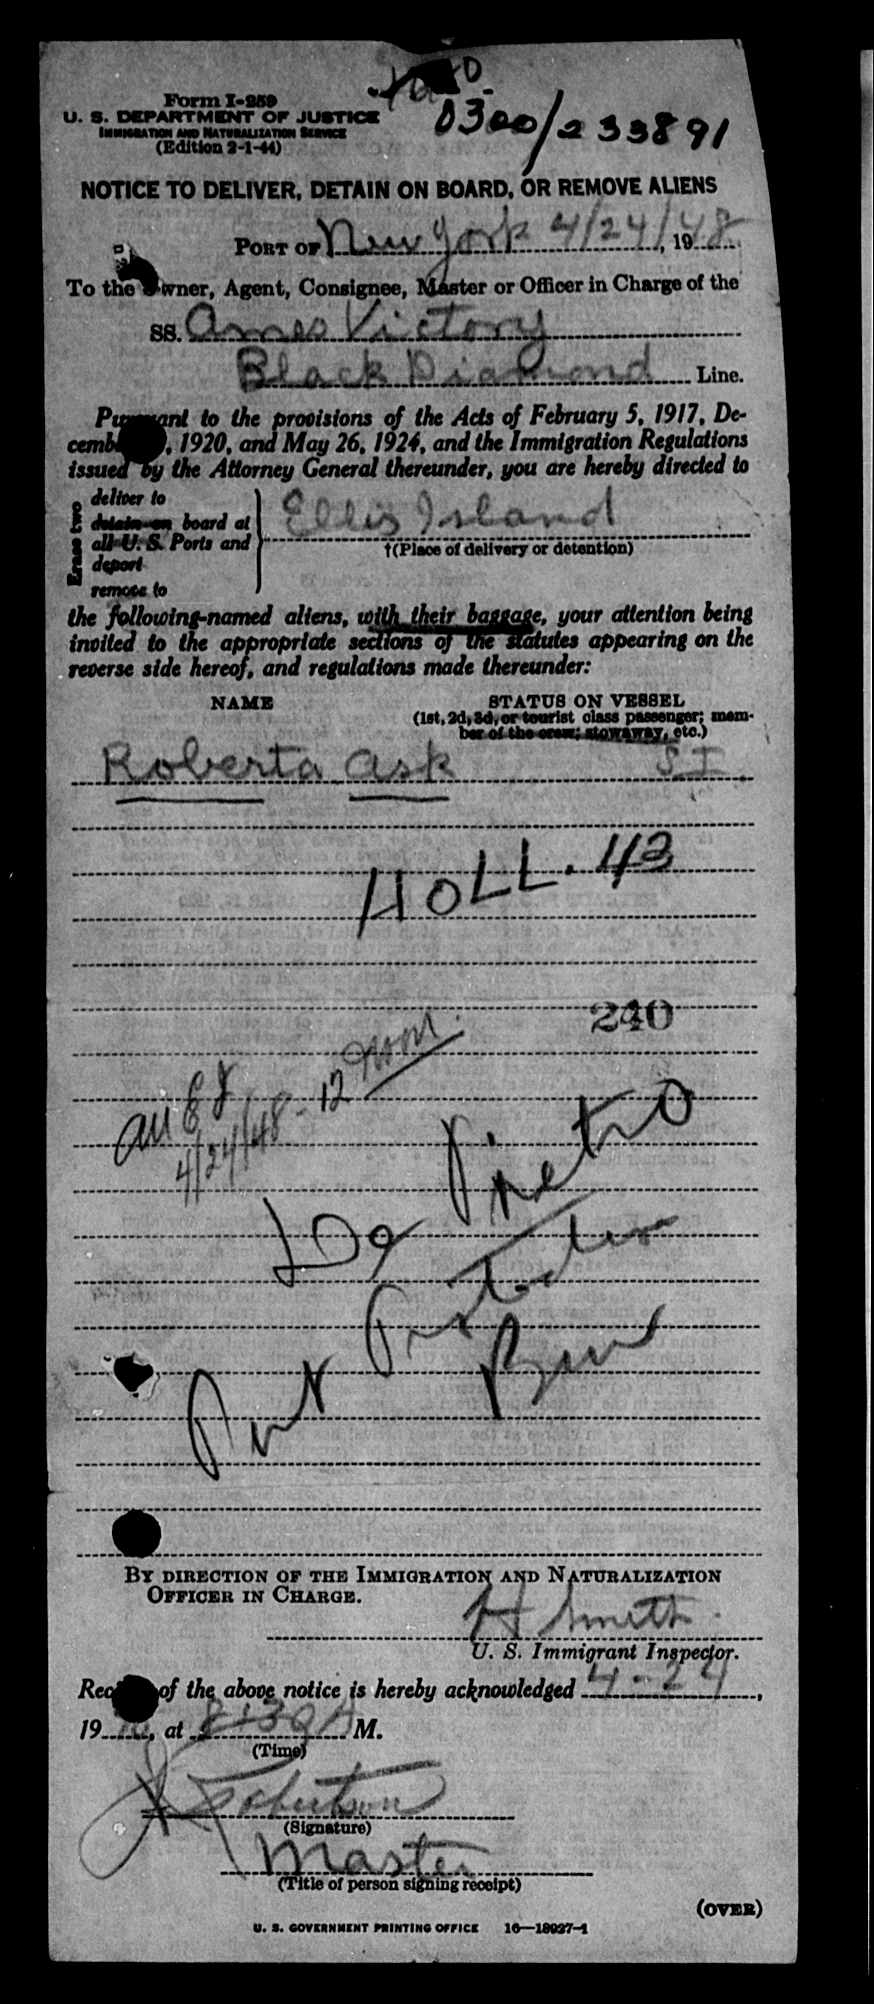 Form I-259
U. S. DEPARTMENT OF JUSTICE
IMMIGRATION AND NATURALIZATION SERVICE
(Edition 2-1-44)
0300/233891
NOTICE TO DELIVER, DETAIN ON BOARD, OR REMOVE ALIENS
PORT OF New York 4/24/48, 19
To the Owner, Agent, Consignee, Master or Officer in Charge of the
SS. Ames Victory
Black Diamond Line.
Pursuant to the provisions of the Acts of February 5, 1917, De-
cember , 1920, and May 26, 1924, and the Immigration Regulations
issued by the Attorney General thereunder, you are hereby directed to
Erase two
deliver to
detain on board at
all U. S. Ports and
deport
remove to
Ellis Island
†(Place of delivery or detention)
the following-named aliens, with their baggage, your attention being
invited to the appropriate sections of the statutes appearing on the
reverse side hereof, and regulations made thereunder:
NAME
STATUS ON VESSEL
(1st, 2d, 3d, or tourist class passenger; mem-
ber of the crew; stowaway, etc.)
Roberta Ask S I
HOLL. 43
240
4/24/48 - 12 noon.
De Pietro
BY DIRECTION OF THE IMMIGRATION AND NATURALIZATION
OFFICER IN CHARGE.
H Smith
U. S. Immigrant Inspector.
Receipt of the above notice is hereby acknowledged 4-24,
19 , at 8:30 A M.
(Time)
Robertson
(Signature)
Master
(Title of person signing receipt)
(OVER)
U. S. GOVERNMENT PRINTING OFFICE 16—18927-1